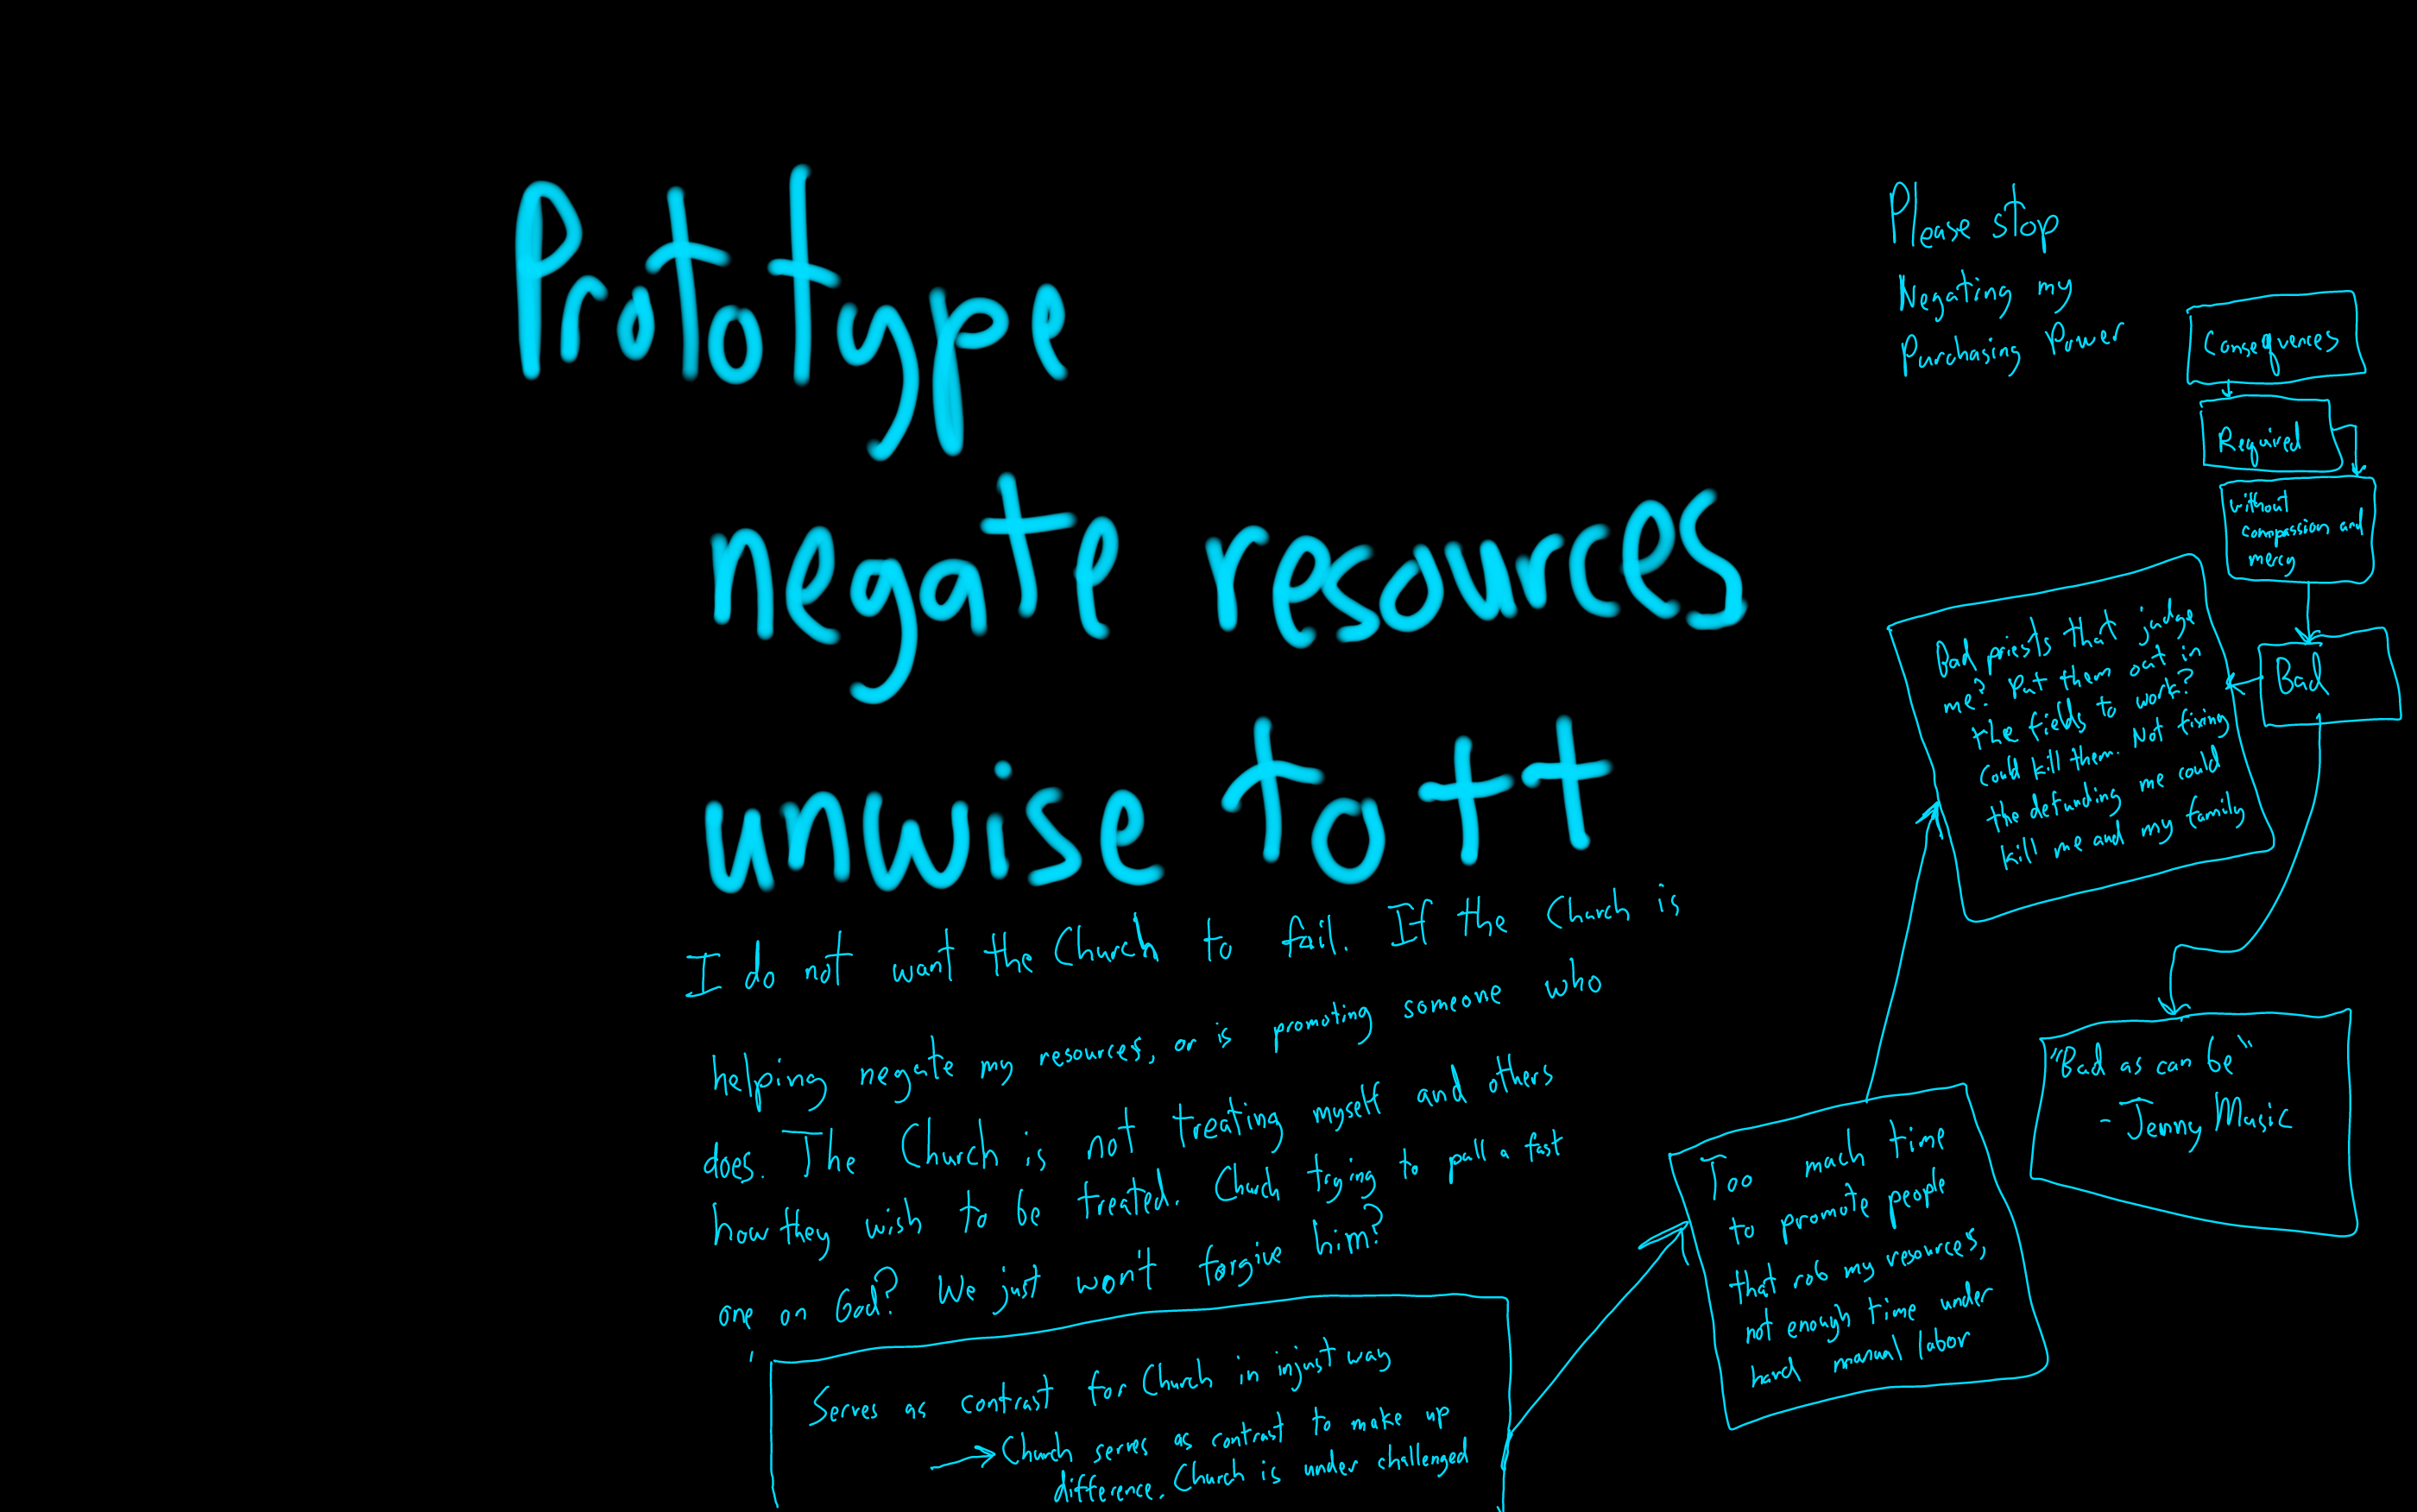 Prototype
negate resources
unwise to ++
I do not want the Church to fail. If the Church is
helping negate my resources, or is promoting someone who
does. The Church is not treating myself and others
how they wish to be treated. Church trying to pull a fast
one on God? We just won't forgive him?
Serves as contrast for Church in injust way
Church serves as contrast to make up
difference. Church is under challenged
Please stop
Negating my
Purchasing Power
Consequences
Required
without
compassion and
mercy
Bad
Bad priests that judge
me? Put them out in
the fields to work?
Could kill them. Not fixing
the defunding me could
kill me and my family
"Bad as can be"
- Jenny Music
Too much time
to promote people
that rob my resources,
not enough time under
hard manual labor